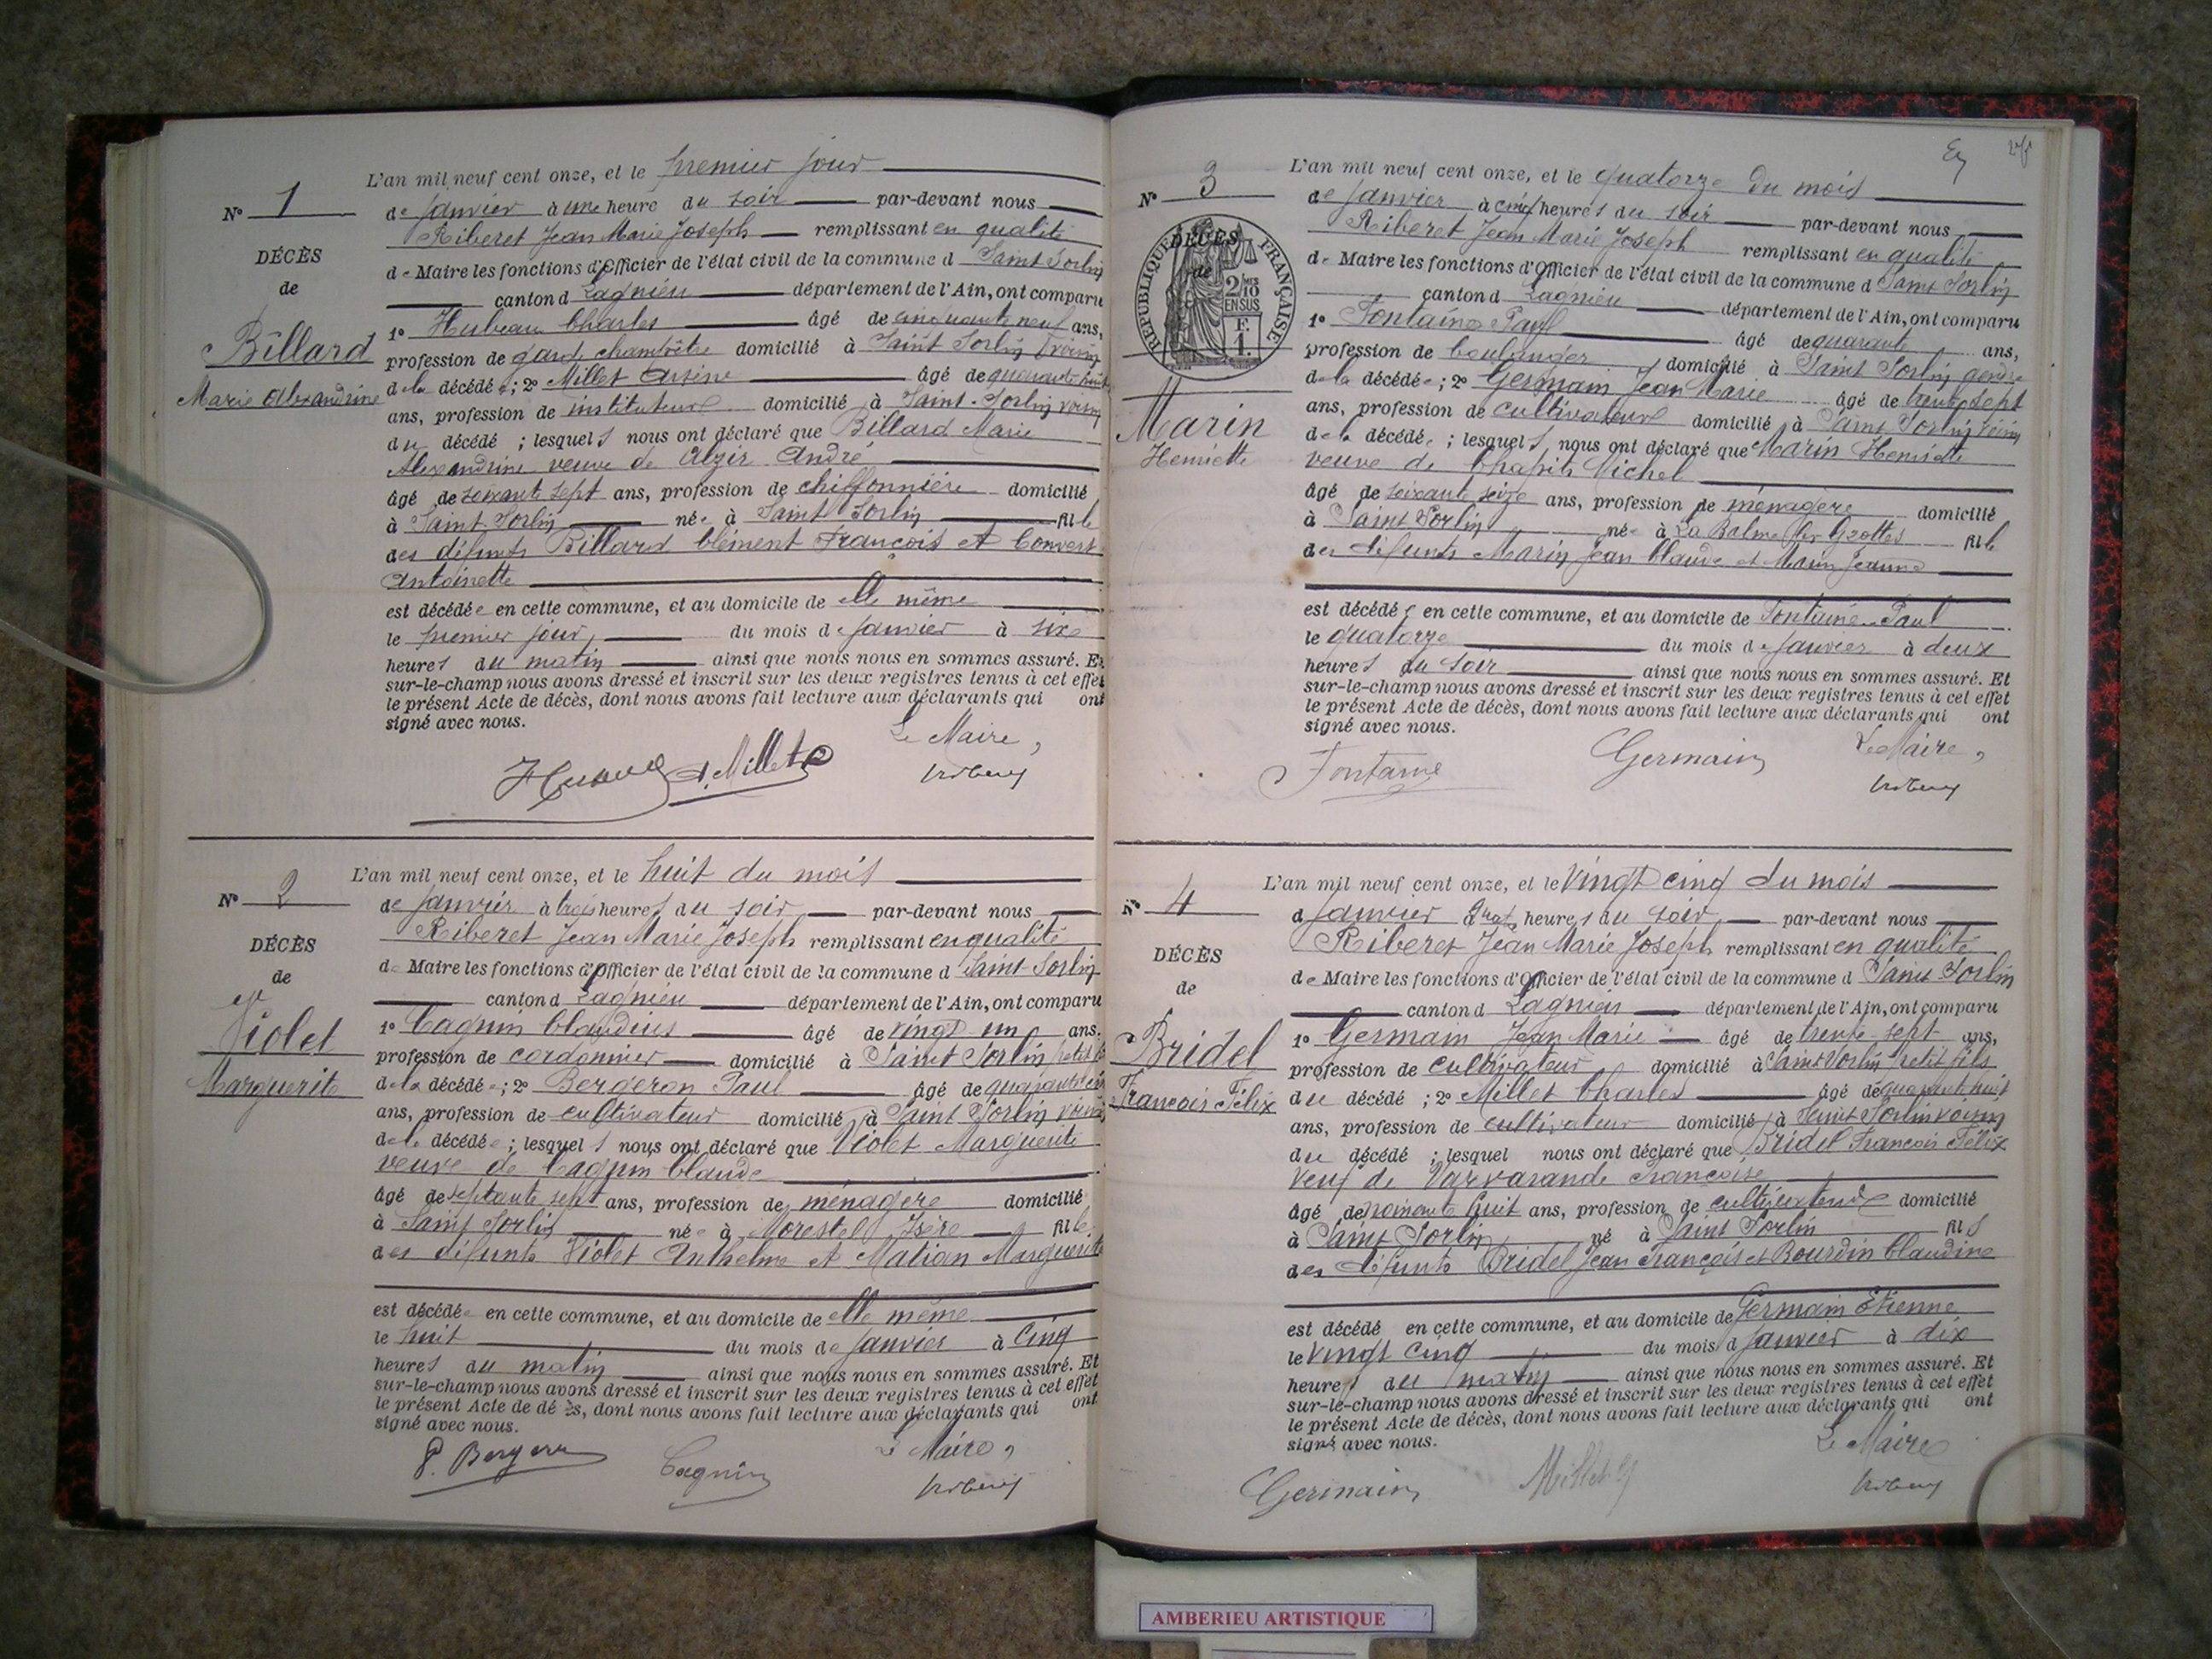 L'an mil neuf cent onze, et le premier jour
N° 1
de janvier à une heure du soir par-devant nous
Riberet Jean Marie Joseph remplissant en qualité
DÉCÈS
de Maire les fonctions d'Officier de l'état civil de la commune d Saint Sorlin
de
canton d Lagnieu département de l'Ain, ont comparu
1° Hubeau Charles âgé de cinquante neuf ans,
Billard
profession de garde champêtre domicilié à Saint Sorlin voisin
Marie Alexandrine
de la décédée ; 2° Millet Arsène âgé de quarante huit
ans, profession de instituteur domicilié à Saint-Sorlin voisin
du décédé ; lesquels nous ont déclaré que Billard Marie
Alexandrine veuve de Alzir André
âgé de soixante sept ans, profession de chiffonnière domicilié
à Saint Sorlin née à Saint Sorlin fille
des défunts Billard Clément François et Convert
Antoinette
est décédée en cette commune, et au domicile de elle même
le premier jour, du mois de janvier à six
heures du matin ainsi que nous nous en sommes assuré. Et
sur-le-champ nous avons dressé et inscrit sur les deux registres tenus à cet effet
le présent Acte de décès, dont nous avons fait lecture aux déclarants qui ont
signé avec nous.
Le Maire,
A. Millet
L'an mil neuf cent onze, et le huit du mois
N° 2
de janvier à trois heures du soir par-devant nous
Riberet Jean Marie Joseph remplissant en qualité
DÉCÈS
de Maire les fonctions d'Officier de l'état civil de la commune d Saint Sorlin
de
canton d Lagnieu département de l'Ain, ont comparu
Violet
1° Cagnin Claudius âgé de vingt un ans.
profession de cordonnier domicilié à Saint Sorlin petit fils
Marguerite
de la décédée ; 2° Bergeron Paul âgé de quarante
ans, profession de cultivateur domicilié à Saint Sorlin voisin
de la décédée ; lesquels nous ont déclaré que Violet Marguerite
veuve de Cagnin Claude
âgé de septante sept ans, profession de ménagère domicilié
à Saint Sorlin née à Morestel Isère fille
des défunts Violet Anthelme et Matian Marguerite
est décédée en cette commune, et au domicile de elle même
le huit du mois de janvier à cinq
heures du matin ainsi que nous nous en sommes assuré. Et
sur-le-champ nous avons dressé et inscrit sur les deux registres tenus à cet effet
le présent Acte de dé ès, dont nous avons fait lecture aux déclarants qui ont
signé avec nous.
Le Maire,
P. Bergeron Cagnin
L'an mil neuf cent onze, et le quatorze du mois
N° 3
de janvier à cinq heures du soir par-devant nous
Riberet Jean Marie Joseph remplissant en qualité
DÉCÈS
de
RÉPUBLIQUE FRANÇAISE
2/10 EN SUS
F. 1.
de Maire les fonctions d'Officier de l'état civil de la commune d Saint Sorlin
canton d Lagnieu département de l'Ain, ont comparu
1° Fontaine Paul âgé de quarante ans,
profession de boulanger domicilié à Saint Sorlin gendre
de la décédée ; 2° Germain Jean Marie âgé de trente sept
Marin
Henriette
ans, profession de cultivateur domicilié à Saint Sorlin voisin
de la décédée ; lesquels nous ont déclaré que Marin Henriette
veuve de Chapuis Michel
âgé de soixante seize ans, profession de ménagère domicilié
à Saint Sorlin née à La Balme les Grottes fille
des défunts Marin Jean Claude et Marin Jeanne
est décédée en cette commune, et au domicile de Fontaine Paul
le quatorze du mois de janvier à deux
heures du soir ainsi que nous nous en sommes assuré. Et
sur-le-champ nous avons dressé et inscrit sur les deux registres tenus à cet effet
le présent Acte de décès, dont nous avons fait lecture aux déclarants qui ont
signé avec nous.
Le Maire,
Fontaine Germain
L'an mil neuf cent onze, et le vingt cinq du mois
N° 4
d janvier à heures du soir par-devant nous
Riberet Jean Marie Joseph remplissant en qualité
DÉCÈS
de Maire les fonctions d'Officier de l'état civil de la commune d Saint Sorlin
de
canton d Lagnieu département de l'Ain, ont comparu
Bridel
1° Germain Jean Marie âgé de trente sept ans,
profession de cultivateur domicilié à Saint Sorlin petit fils
François Félix
du décédé ; 2° Millet Charles âgé de quarante huit
ans, profession de cultivateur domicilié à Saint Sorlin voisin
du décédé ; lesquel nous ont déclaré que Bridel François Félix
veuf de Varvarande Françoise
âgé de nonante huit ans, profession de cultivateur domicilié
à Saint Sorlin né à Saint Sorlin fils
des défunts Bridel Jean François et Bourdin Claudine
est décédé en cette commune, et au domicile de Germain Etienne
le vingt cinq du mois d janvier à dix
heures du matin ainsi que nous nous en sommes assuré. Et
sur-le-champ nous avons dressé et inscrit sur les deux registres tenus à cet effet
le présent Acte de décès, dont nous avons fait lecture aux déclarants qui ont
signé avec nous.
Le Maire
Germain Millet
AMBERIEU ARTISTIQUE